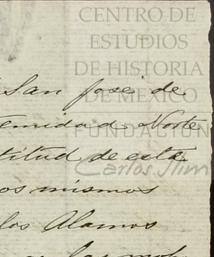 CENTRO DE
ESTUDIOS
DE HISTORIA
DE MÉXICO
FUNDACIÓN
Carlos Slim
San José de
ernidad Norte
titud de esta
os mismos
los Alamos